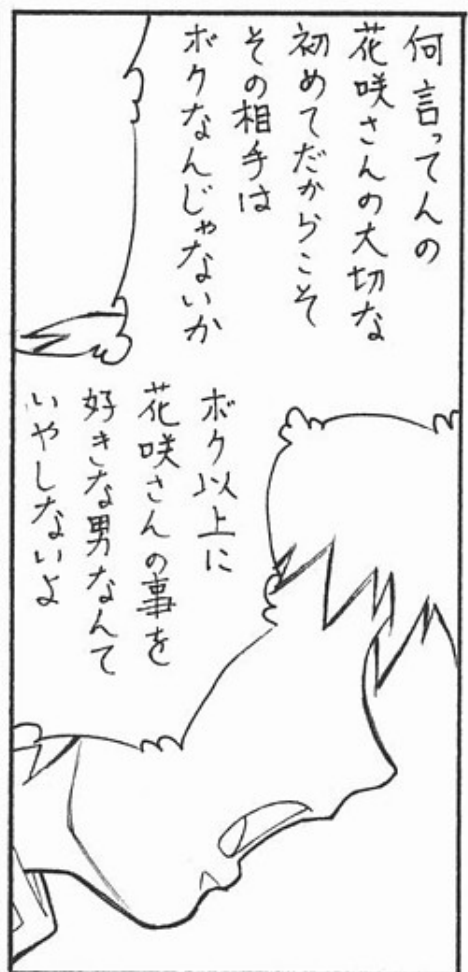 何言ってんの
花咲さんの大切な
初めてだからこそ
その相手は
ボクなんじゃないか
ボク以上に
花咲さんの事を
好きな男なんて
いやしないよ